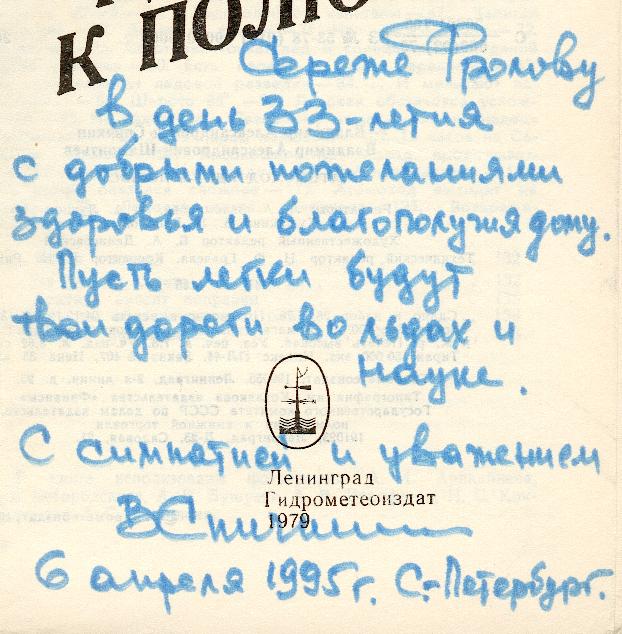 К ПОЛЮ
Сереже Фролову
в день 33-летия
с добрыми пожеланиями
здоровья и благополучия дому.
Пусть легки будут
твои дороги во льдах и
науке.
С симпатией и уважением
Ленинград
Гидрометеоиздат
1979
6 апреля 1995г. С.-Петербург.